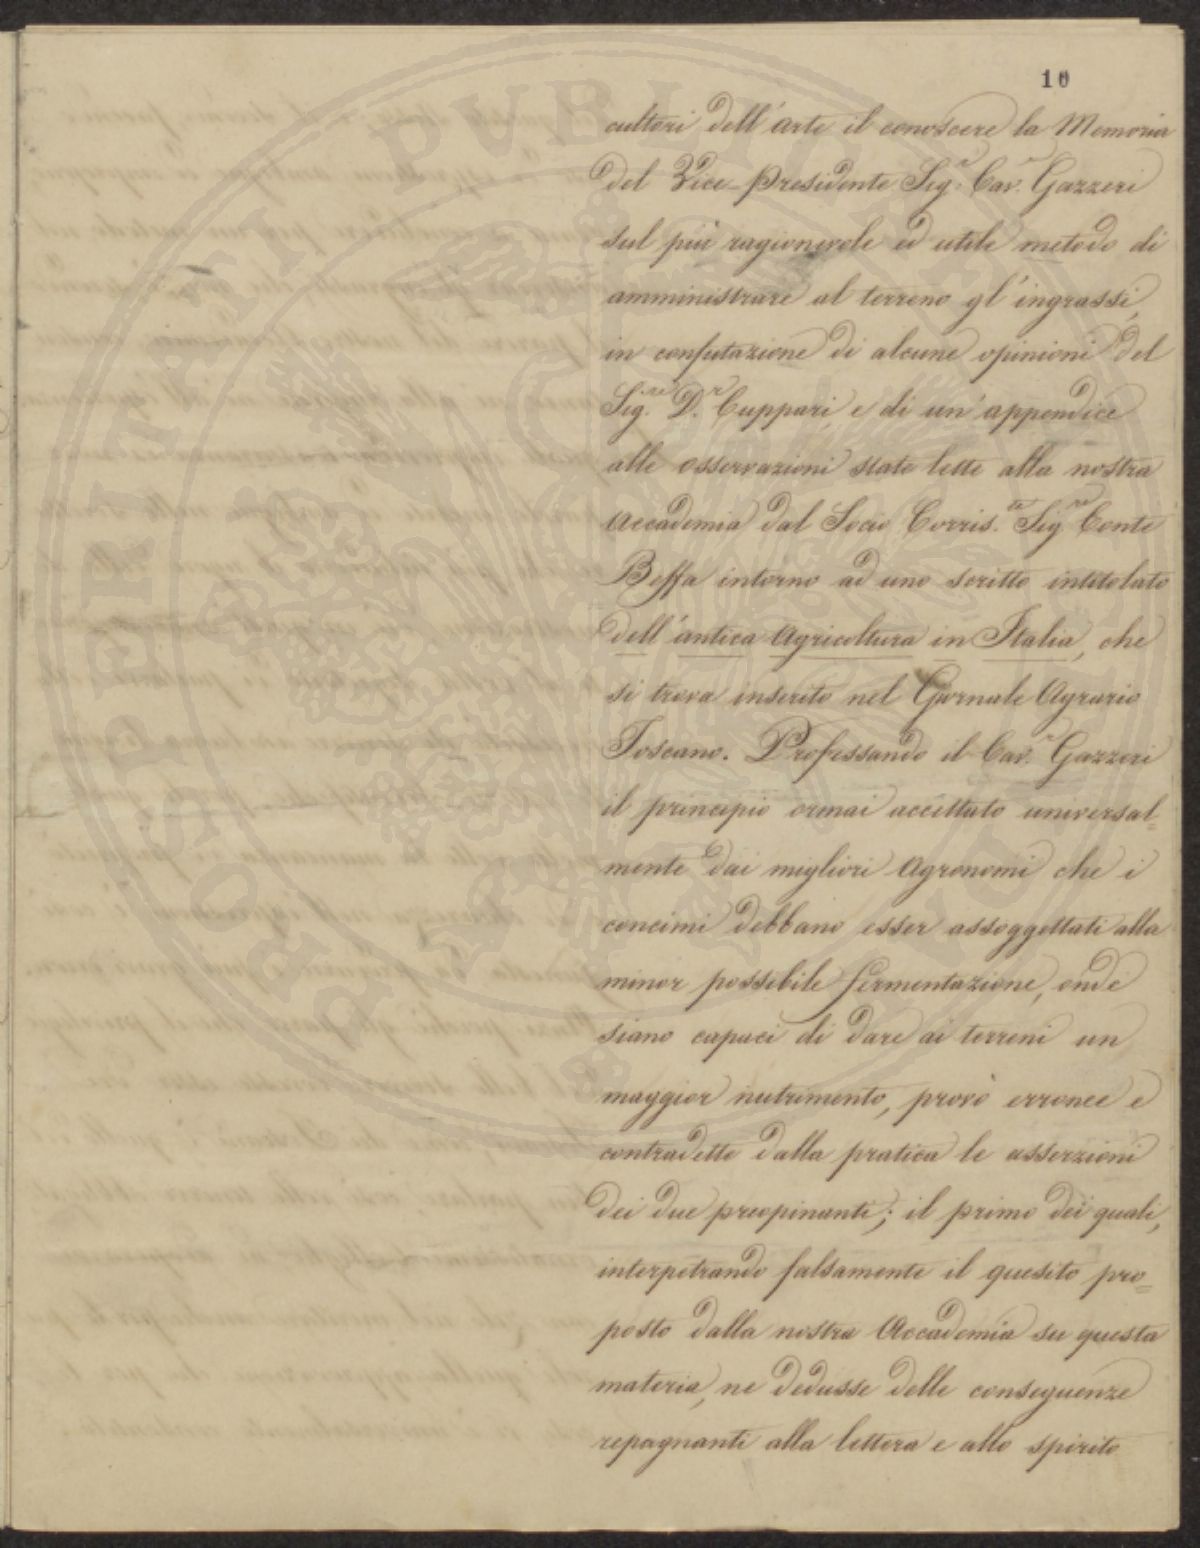 10
cultori dell'arte il conoscere la Memoria
del Vice-Presidente Sig.r Cav.r Gazzeri
sul più ragionevole ed utile metodo di
amministrare al terreno gl'ingrassi,
in confutazione di alcune opinioni del
Sig.re D.r Cuppari, e di un'appendice
alle osservazioni state lette alla nostra
Accademia dal Socio Corris.te Sig.re Conte
Beffa intorno ad uno scritto intitolato
dell'antica Agricoltura in Italia, che
si trova inserito nel Giornale Agrario
Toscano. Professando il Cav.r Gazzeri
il principio ormai accettato universal=
mente dai migliori Agronomi che i
concimi debbano esser assoggettati alla
minor possibile fermentazione, onde
siano capaci di dare ai terreni un
maggior nutrimento, provò erronee e
contradette dalla pratica le asserzioni
dei due preopinanti; il primo dei quali,
interpetrando falsamente il quesito pro=
posto dalla nostra Accademia su questa
materia, ne dedusse delle conseguenze
repagnanti alla lettera e allo spirito
PROSPERITATI PVBLICAE